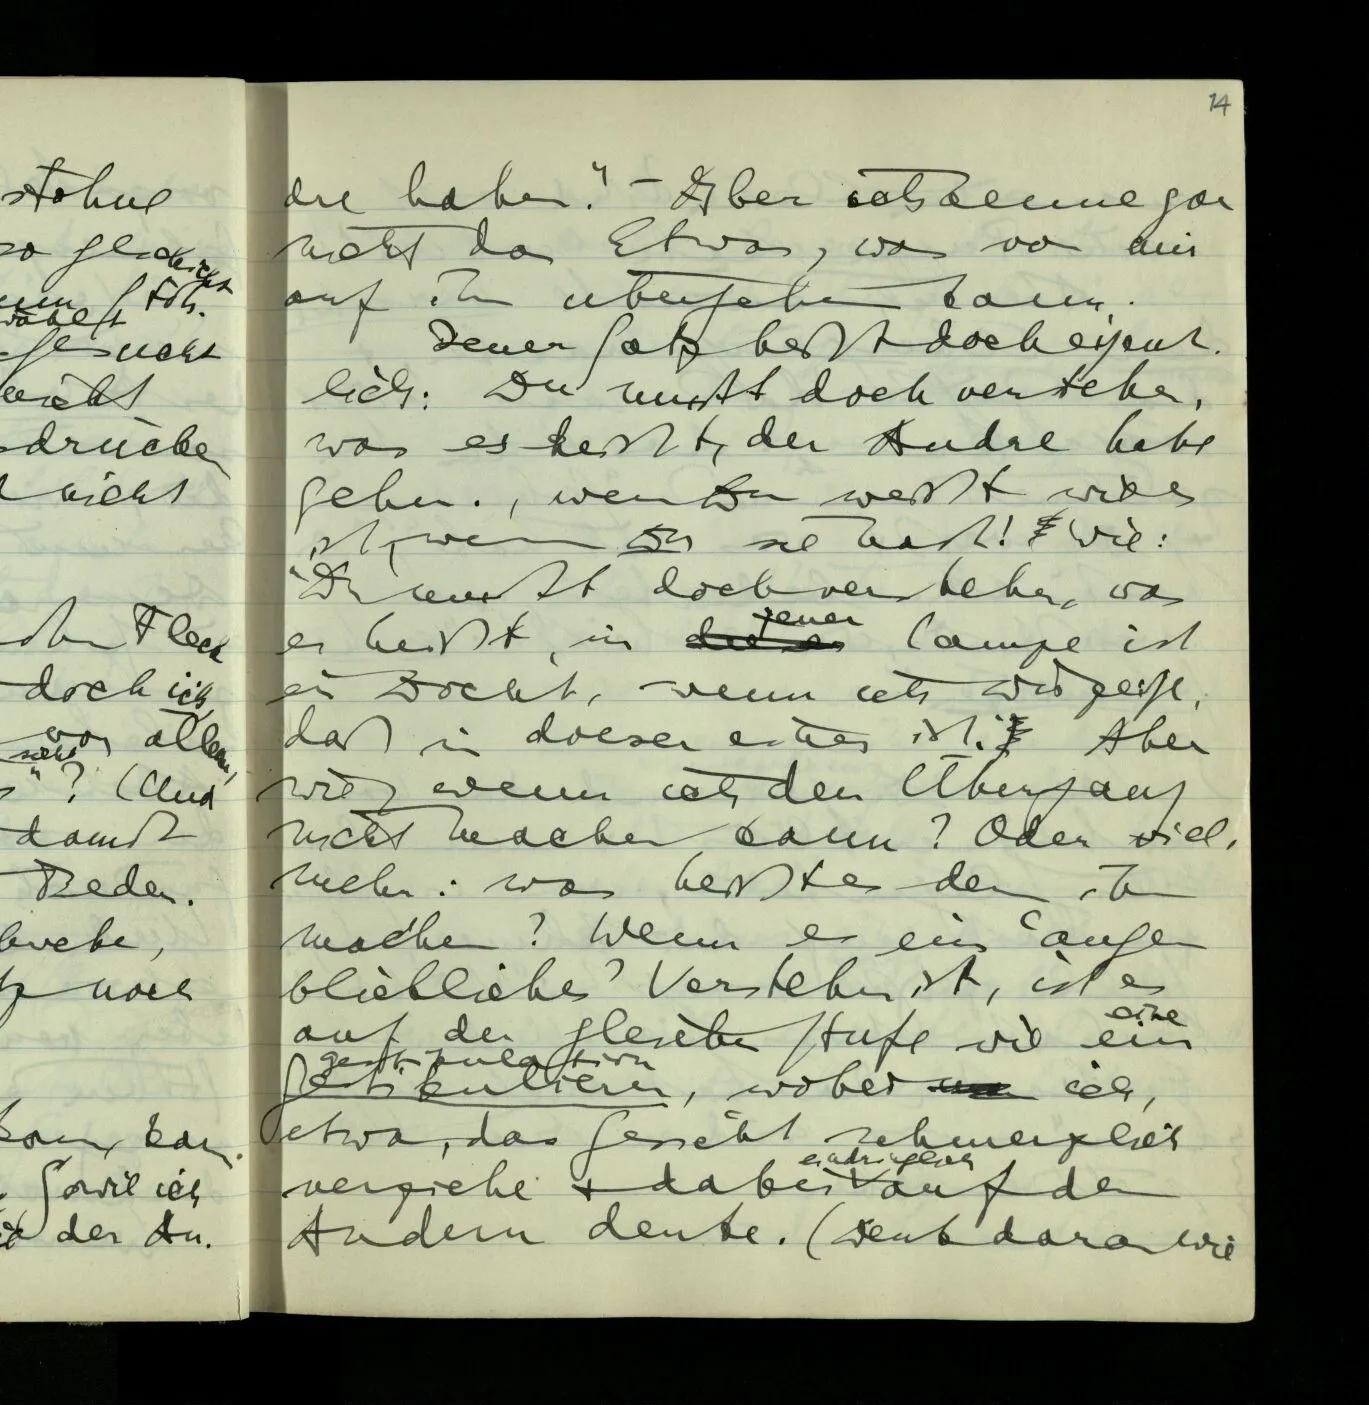 stöhne
so gleich
nicht
gesucht
nicht
drücken
nicht
Fleck
doch ich
vor allem,
sieht
"? (Und
damit
Reden.
noch
kann, kan.
Sowie ich
der An.
14
dre haben." – Aber ich kenne gar
nicht das Etwas, was von mir
auf ihn übergehen kann.
Jener Satz heißt doch eigent-
lich: Du mußt doch verstehen,
was es heißt, der Andre habe
Zahn, wenn Du weißt wie es
ist, wenn Du sie hast! Wie:
"Du mußt doch verstehen, was
es heißt, in dieser jener Lampe ist
ein Docht, wenn ich Dir zeige,
daß in dieser einer ist." Aber
wie, wenn ich den Übergang
nicht machen kann? Oder viel-
mehr: was heißt es denn ihn
machen? Wenn es ein 'augen-
blickliches' Verstehen ist, ist es
auf der gleichen Stufe wie ein
eine
Gestikulation
Gestikulieren, wobei ich,
etwa, das Gesicht schmerzlich
verziehe + dabei eindringlich auf den
Andern deute. (Denk daran wie